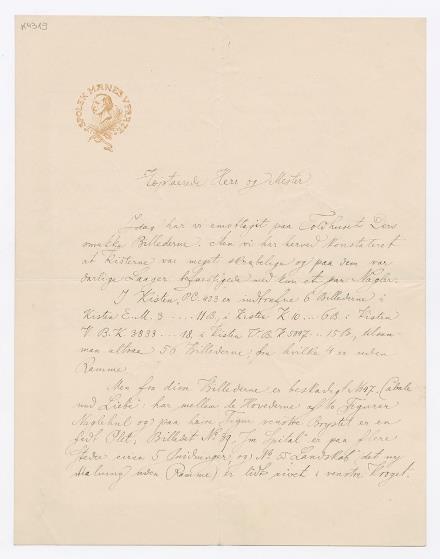 K4319
SPOLEK MANES V PRAZE
Højstærede Herr og Mester
Idag har vi emottagit paa Toldhuset Ders
smukke Billederne. Men vi har herved konstateret
at Kisterne var meget skrøbelige og paa dem var
darlige Laager befæstigede med kun et par Nagler.
I Kisten P.C. 423 er indtrufne 6 Billederne i
Kisten E.M. 3 .... 11 B, i Kisten K 10 .. 6 B i Kisten
V.B.K 3833 .... 18, i Kisten V.B.K 5997 .. 15 B,
man altsaa 56 Billederne, fra hvilke 4 er uden
Ramme.
Men fra disse Billederne er beskadigt №97. "Cabale
und Liebe": har mellem de Hovederne af to Figurer
Naglehul og paa
fedt Plet, Billedet № 39 "Im Spital" er paa flere
Steder circa 5 og № 55 "Landskab" det ny
Malning uden (Ramme) er lidt rivet i venstre Kroget.